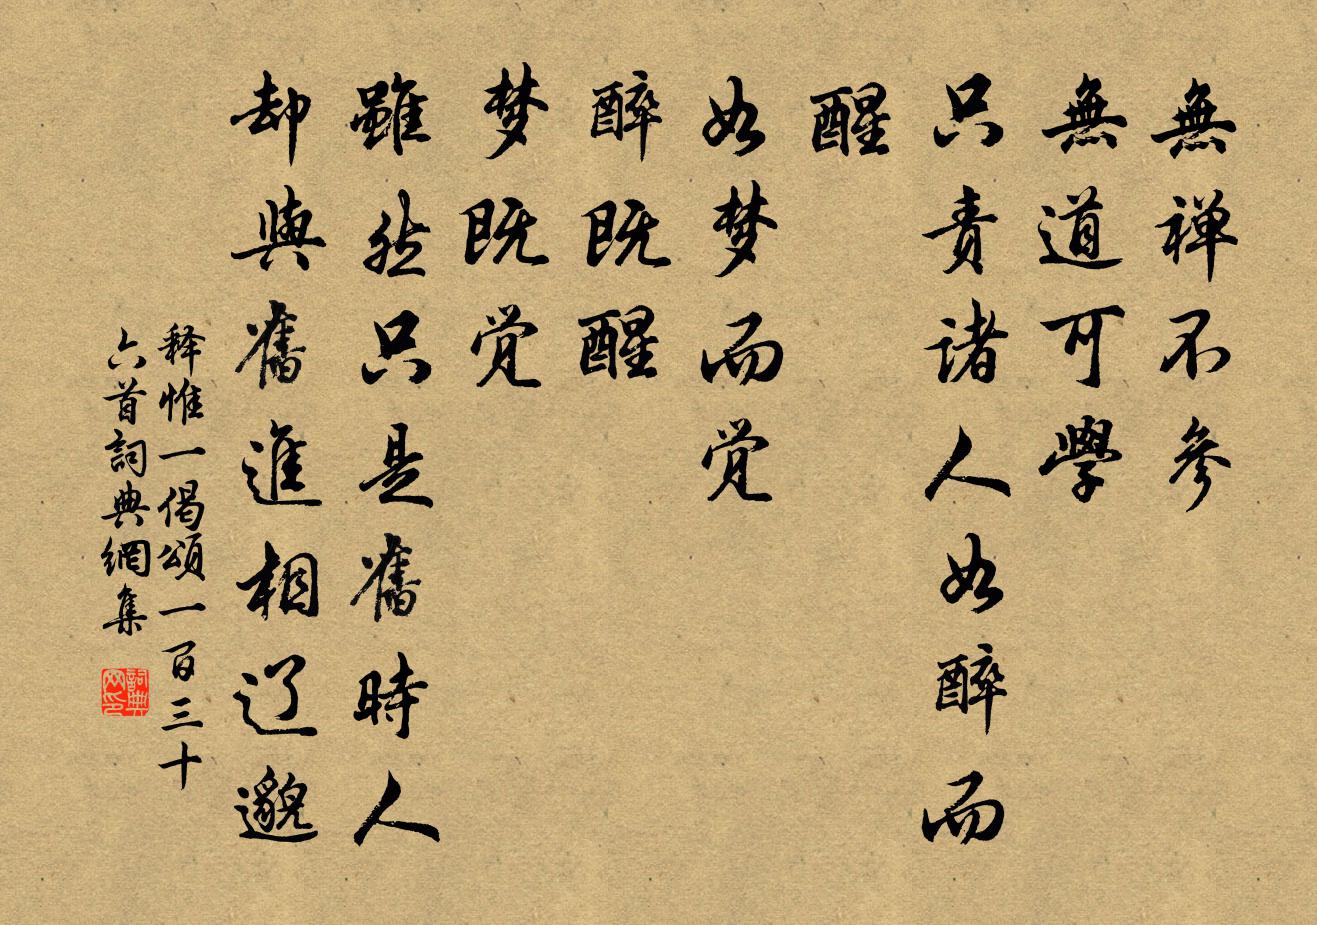 無禅不參
無道可學
只責諸人如醉而
醒
如梦而觉
醉既醒
梦既觉
雖然只是舊時人
却與舊進相辽邈
释惟一偈頌一百三十
六首詞典網集
詞典
网印